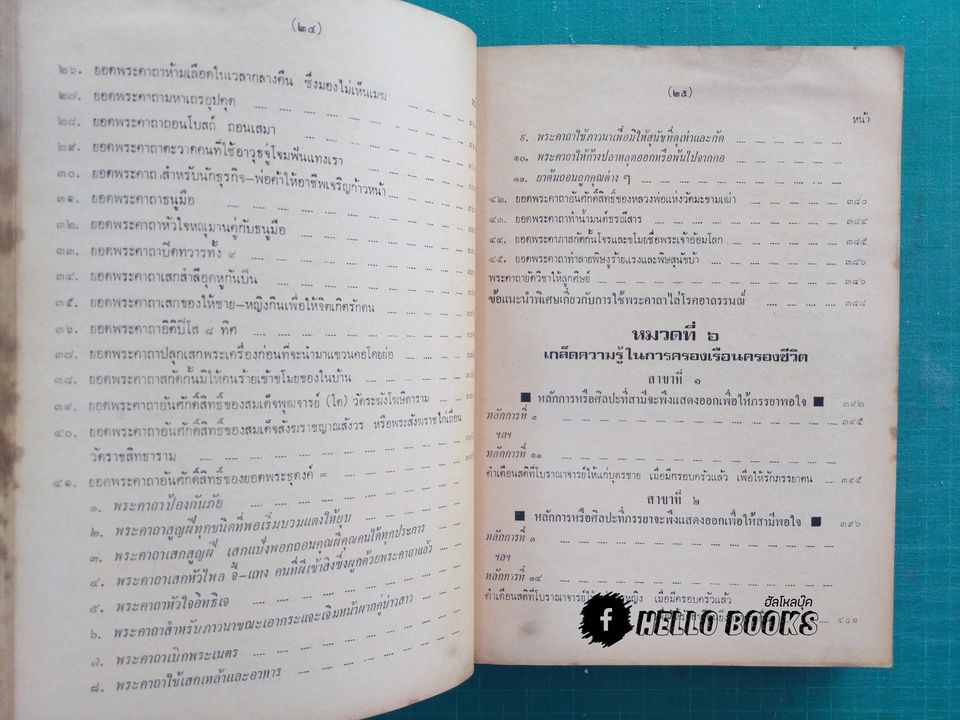 (๒๔)
๒๖. ยอดพระคาถาห้ามเลือดในเวลากลางคืน ซึ่งมองไม่เห็นเมฆ
๒๗. ยอดพระคาถามหาเถรอุปคุต
๒๘. ยอดพระคาถาถอนโบสถ์ ถอนเสมา
๒๙. ยอดพระคาถาตะวาดคนที่ใช้อาวุธจู่โจมฟันแทงเรา
๓๐. ยอดพระคาถาสำหรับนักธุรกิจ-พ่อค้าให้อาชีพเจริญก้าวหน้า
๓๑. ยอดพระคาถาธนูมือ
๓๒. ยอดพระคาถาหัวใจหณุมานคู่กับธนูมือ
๓๓. ยอดพระคาถาปิดทวารทั้ง ๙
๓๔. ยอดพระคาถาเสกสำลีอุดหูกันปืน
๓๕. ยอดพระคาถาเสกของให้ชาย-หญิงกินเพื่อให้จิตเกิดรักตน
๓๖. ยอดพระคาถาอิติปิโส ๘ ทิศ
๓๗. ยอดพระคาถาปลุกเสกพระเครื่องก่อนที่จะนำมาแขวนคอโดยย่อ
๓๘. ยอดพระคาถาสกัดกั้นมิให้คนร้ายเข้าขโมยของในบ้าน
๓๙. ยอดพระคาถาอันศักดิ์สิทธิ์ของสมเด็จพุฒจารย์ (โต) วัดระฆังโฆษิตาราม
๔๐. ยอดพระคาถาอันศักดิ์สิทธิ์ของสมเด็จสังฆราชญาณสังวร หรือพระสังฆราชไก่เถื่อน
วัดราชสิทธาราม
๔๑. ยอดพระคาถาอันศักดิ์สิทธิ์ของยอดพระธุดงค์ =
๑. พระคาถาป้องกันภัย
๒. พระคาถาสูญฝีทุกชนิดที่พอเริ่มบวมแดงให้ยุบ
๓. พระคาถาเสกสูญฝี เสกแป้งพอกถอนคุณผีคุณคนได้ทุกประการ
๔. พระคาถาเสกหัวไพล จี้-แทง คนที่ผีเข้าสิงซึ่งผูกด้วยพระคาถาแล้ว
๕. พระคาถาหัวใจอิทธิเจ
๖. พระคาถาสำหรับภาวนาขณะเอากระแจะเจิมหน้าผากคู่บ่าวสาว
๗. พระคาถาเบิกพระเนตร
๘. พระคาถาใช้เสกเหล้าและอาหาร
(๒๕)
หน้า
๙. พระคาถาใช้ภาวนาเพื่อมิให้สุนัขที่ดุเห่าและกัด
๑๐. พระคาถาให้ก้างปลาหลุดออกหรือพ้นไปจากคอ
๑๑. ยาต้มถอนถูกคุณต่าง ๆ
๔๒. ยอดพระคาถาอันศักดิ์สิทธิ์ของหลวงพ่อแห่งวัดมะขามเฒ่า ๓๘๐
๔๓. ยอดพระคาถาทำน้ำมนต์ธรณีสาร ๓๘๔
๔๔. ยอดพระคาภาสกัดกั้นโจรและขโมยชื่อพระเจ้าอ้อมโลก ๓๘๕
๔๕. ยอดพระคาถาทำลายพิษงูร้ายแรงและพิษสุนัขบ้า ๓๘๖
พระคาถายัดวิชาให้ลูกศิษย์ ๓๘๖
ข้อแนะนำพิเศษเกี่ยวกับการใช้พระคาถาไสโรคอาถรรณ์ ๓๘๘
หมวดที่ ๖
เกล็ดความรู้ในการครองเรือนครองชีวิต
สาขาที่ ๑
■ หลักการหรือศิลปะที่สามีจะพึงแสดงออกเพื่อให้ภรรยาพอใจ ■ ๓๙๒
หลักการที่ ๑ ๓๙๕
ฯลฯ
หลักการที่ ๑๑
คำเตือนสติที่โบราณาจารย์ให้แก่บุตรชาย เมื่อมีครอบครัวแล้ว เพื่อให้รักภรรยาตน ๓๙๕
สาขาที่ ๒
■ หลักการหรือศิลปะที่ภรรยาจะพึงแสดงออกเพื่อให้สามีพอใจ ■ ๓๙๖
หลักการที่ ๑
ฯลฯ
หลักการที่ ๑๔
คำเตือนสติที่โบราณาจารย์ให้ หญิง เมื่อมีครอบครัวแล้ว
๔๐๑
ฮัลโหลบุ๊ค
f HELLO BOOKS